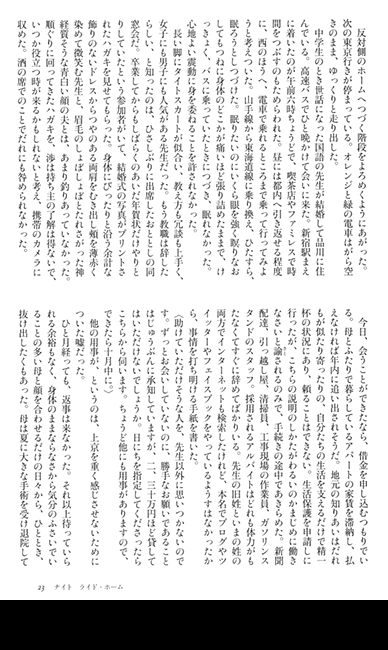 反対側のホームへつづく階段をよろめくようにあがった。
次の東京行きが停まっている。オレンジと緑の電車はがら空
きのまま、ゆっくりと走り出した。
中学生のとき世話になった国語の先生が結婚して品川に住
んでいる。高速バスでひと晩かけて会いに来た。新宿駅まえ
に着いたのが午前六時ちょうどで、喫茶店やファミレスで時
間をつぶすのもためらわれた。昼には都内へ引き返せる程度
に、西のほうへ、電車で乗れるところまで乗って行ってみよ
うと考えついた。山手線から東海道線に乗り換え、ひたすら、
眠ろうとしつづけた。眠りたいのににくく眼を強く瞑りなお
してもつねに身体のどこかが痛いほど張り詰めたままで、け
っきょく、バスに乗っていたときにつづき、眠れなかった。
心地よい震動に身を委ねることを許されなかった。
長い脚にタイトスカートが似合い、教え方も冗談も上手く、
女子にも男子にも人気がある先生だった。もう教職は辞した
らしい、と知ったのは、ひさしぶりに出席したおととしの同
窓会だ。卒業してからもしばらくのあいだ年賀状だけやりと
りしていたという参加者がいて、結婚式の写真がプリントさ
れたハガキを見せてもらった。身体にぴったりと沿う余計な
飾りのないドレスからつやのある両肩をむき出し頬を薄赤く
染めて微笑む先生と、眉毛のしょぼしょぼとたれさがった神
経質そうな青白い顔の夫とは、あまり釣りあっていなかった。
順ぐりに回ってきたハガキを、渉は持ち主の了解は得ないで、
いつか役立つ時が来るかもしれないと考え、携帯のカメラに
収めた。酒の席でのことでだれにも咎められなかった。
今日、会うことができたなら、借金を申し込むつもりでい
る。母とふたりで暮らしているアパートの家賃を滞納し、払
えなければ年内に追い出されそうだ。地元の知りあいはだれ
もが似たり寄ったりの、自分たちの生活を支えるだけで精一
杯の状況にあり、頼ることはできない。生活保護を申請しに
行ったが、こちらの説明のしかたがわるいのかまじめに働き
なさいと諭されるのみで、手続きの途中であきらめた。新聞
配達、引っ越し屋、清掃員、工事現場の作業員、ガソリンス
タンドのスタッフ。採用されるアルバイトはどれも体力がも
たなくてすぐに辞めてばかりいる。先生の旧姓といまの姓の
両方でインターネットも検索したけれど、本名でブログやツ
イッターやフェイスブックをやっているようすはなかったか
ら、事情を打ち明ける手紙を書いた。
（助けていただけそうな人を、先生以外に思いつかないので
す。ずっとお会いしていないのに、勝手なお願いであること
はじゅうぶんに承知していますが、二、三十万円ほど貸して
はいただけないでしょうか。日にちを指定してくださったら
こちらから伺います。ちょうど他にも用事がありますので、
できたら十月中に。）
他の用事が、というのは、上京を重く感じさせないために
ついた嘘だった。
ひと月経っても、返事は来なかった。それ以上待っていら
れる余裕もなく、身体のままならなさから気分のふさいでい
ることの多い母と顔を合わせるだけの日々から、ひととき、
抜け出したくもあった。母は夏に大きな手術を受け退院して
23　ナイト　ライド・ホーム